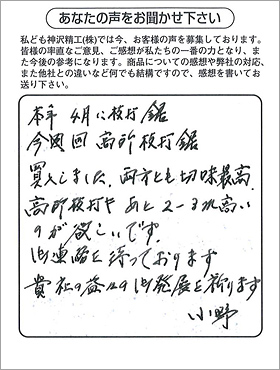 あなたの声をお聞かせ下さい
私ども神沢精工(株)では今、お客様の声を募集しております。
皆様の率直なご意見、ご感想が私たちの一番の力となり、ま
た今後の参考になります。商品についての感想や弊社の対応、
また他社との違いなど何でも結構ですので、感想を書いてお
送り下さい。
本年 4月に枝打鋸
今回 高所枝打鋸
買入しました。両方とも切味最高。
高所枝打や あと2〜3m高い
のが欲しいです。
御連絡を待っております
貴社の益々の御発展を祈ります
小野